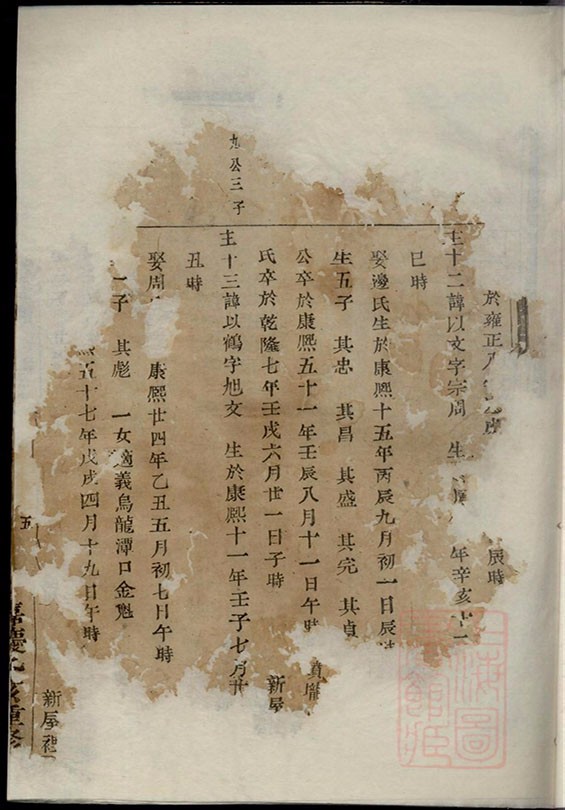 於雍正八 辰時
主十二諱以文字宗周 生 年辛亥十一
巳時
娶邊氏生於康熙十五年丙辰九月初一日辰
生五子 其忠 其昌 其盛 其完 其貞
公卒於康熙五十一年壬辰八月十一日午時
氏卒於乾隆七年壬戌六月廿一日子時 新屋
公三子
主十三諱以鶴字旭文 生於康熙十一年壬子七月廿
丑時
娶周 康熙廿四年乙丑五月初七日午時
一子 其彪 一女適義烏龍潭口金魁
五十七年戊戌四月十九日午時
五
新屋
重修